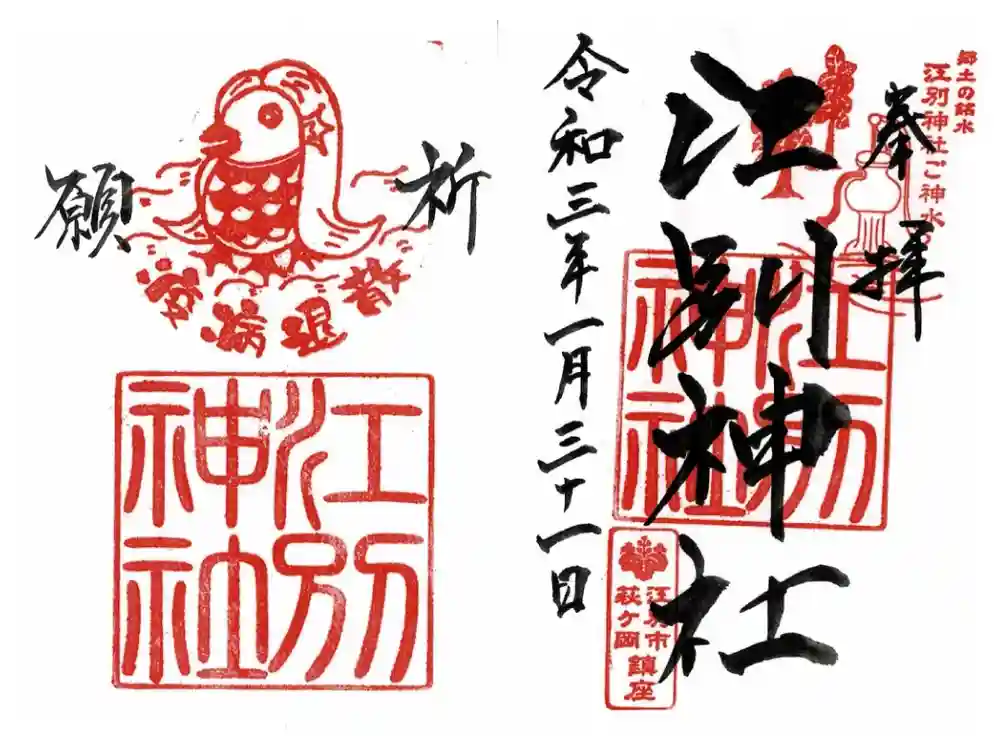 郷土の銘水
江別神社ご神水
奉拝
江別神社
江別神社
江別市
萩ヶ岡
鎮座
令和三年一月三十一日
祈願
疫病退散
江別神社